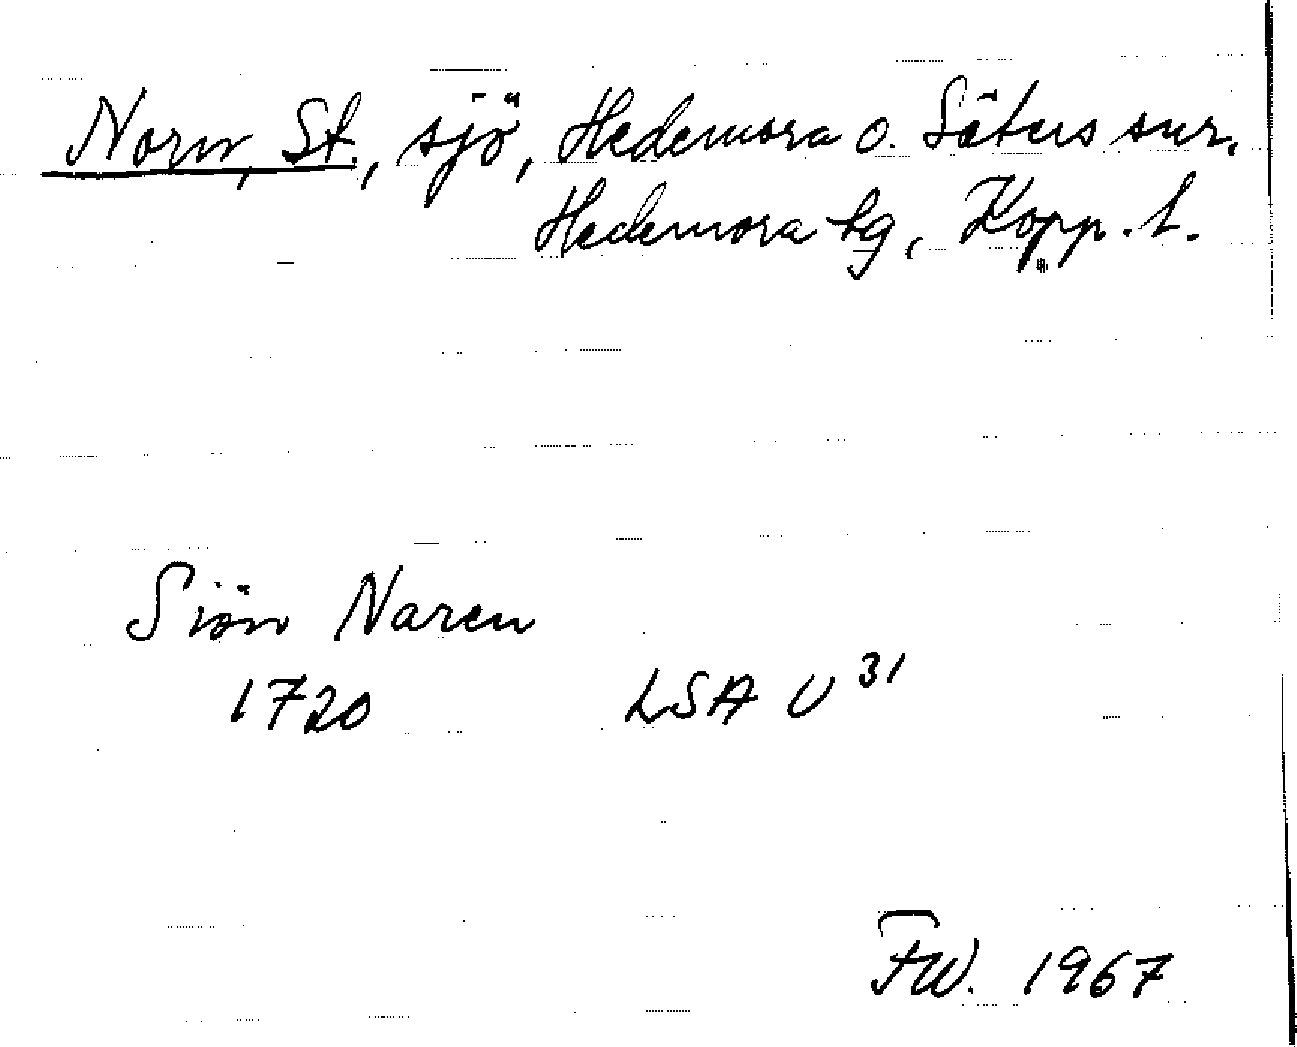 Norn, St., sjö, Hedemora o. Säters snr.
Hedemora tg, Kopp. l.
Siön Naren
1720 LSA U 31
FW. 1967